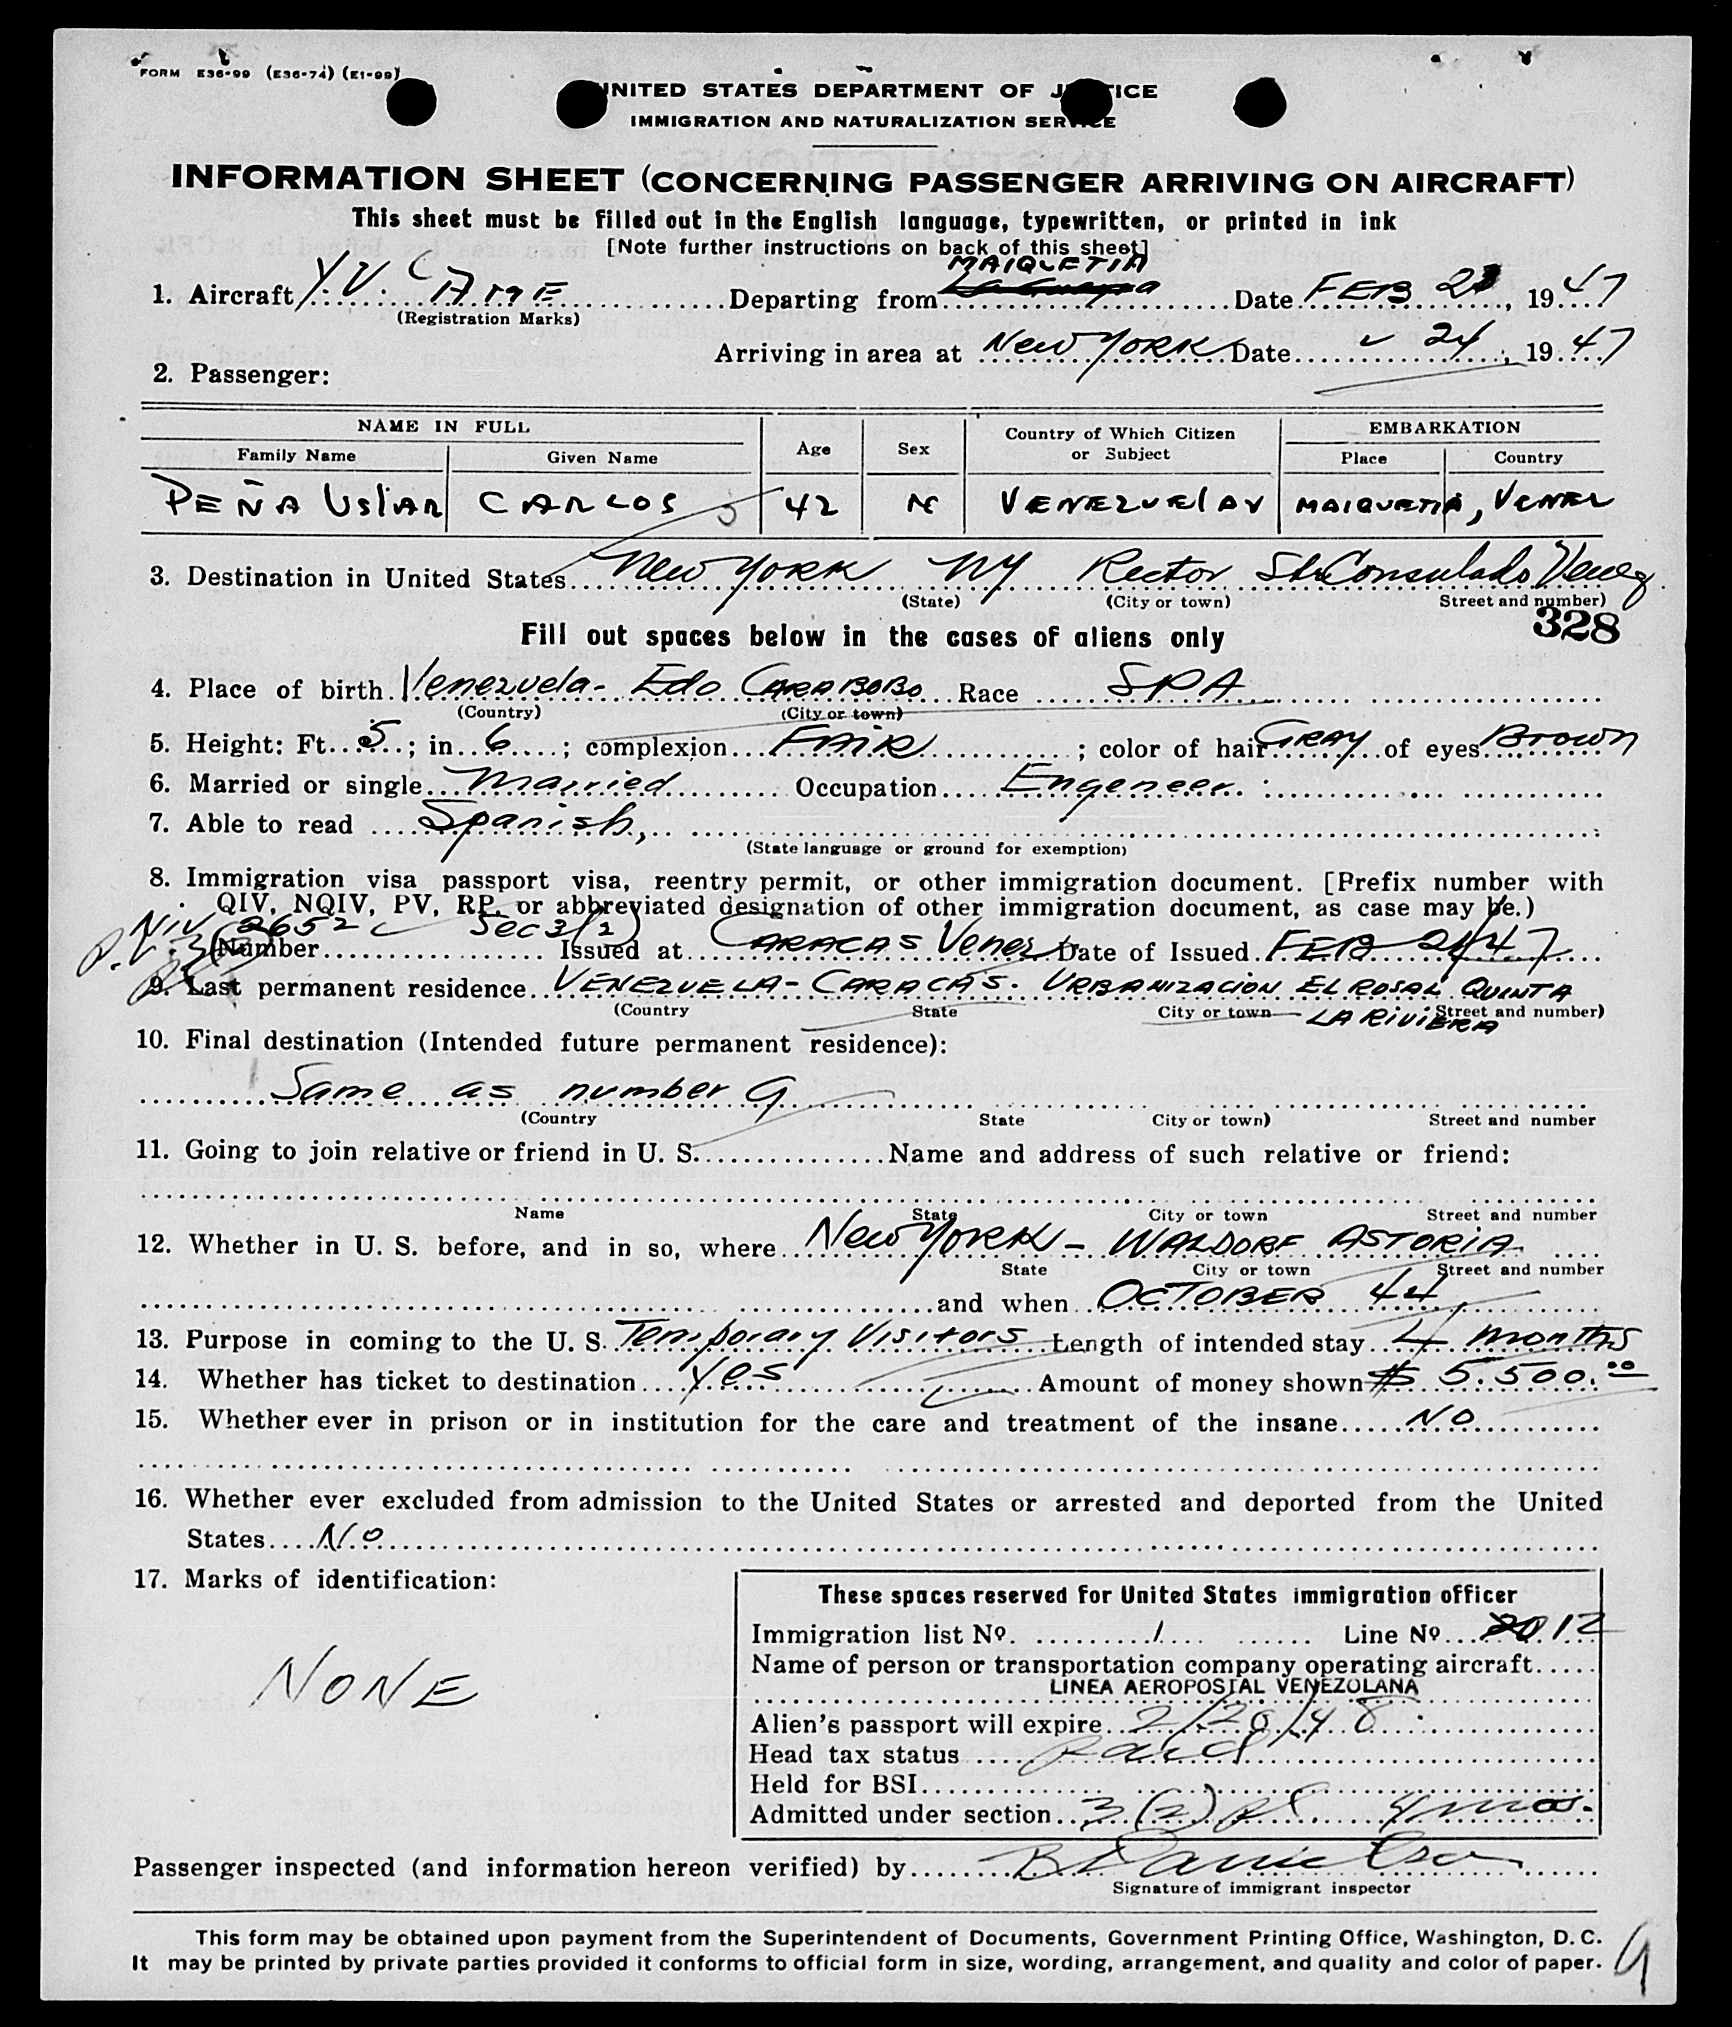 FORM E36-99 (E36-74) (E1-99)
UNITED STATES DEPARTMENT OF JUSTICE
IMMIGRATION AND NATURALIZATION SERVICE
INFORMATION SHEET (CONCERNING PASSENGER ARRIVING ON AIRCRAFT)
This sheet must be filled out in the English language, typewritten, or printed in ink
[Note further instructions on back of this sheet]
MAIQUETIA
1. Aircraft Y.V. C AME Departing from La Guayra Date FEB 21, 1947
(Registration Marks)
Arriving in area at New York Date 24, 1947
2. Passenger:
NAME IN FULL Age Sex Country of Which Citizen or Subject EMBARKATION
Family Name Given Name Place Country
PEÑA USLAR CARLOS 42 M VENEZUELAN MAIQUETIA, VENEZ
3. Destination in United States New York NY Rector Str Consulado Venez.
(State) (City or town) Street and number)
328
Fill out spaces below in the cases of aliens only
4. Place of birth Venezuela - Edo CARABOBO Race SPA
(Country) (City or town)
5. Height: Ft. 5; in. 6; complexion FAIR; color of hair GRAY of eyes Brown
6. Married or single Married Occupation Engeneer
7. Able to read Spanish,
(State language or ground for exemption)
8. Immigration visa passport visa, reentry permit, or other immigration document. [Prefix number with
QIV, NQIV, PV, RP, or abbreviated designation of other immigration document, as case may be.)
NIV 2652 Sec 3(2)
P.V. (Number Issued at CARACAS Venez Date of Issued FEB 21/47
9. Last permanent residence VENEZUELA - CARACAS. URBANIZACION EL ROSAL QUINTA
(Country State City or town Street and number)
LA RIVIERA
10. Final destination (Intended future permanent residence):
Same as number 9
(Country State City or town) Street and number
11. Going to join relative or friend in U. S. Name and address of such relative or friend:
Name State City or town Street and number
12. Whether in U. S. before, and in so, where New York - WALDORF ASTORIA
State City or town Street and number
and when OCTOBER 44
13. Purpose in coming to the U. S. Temporary Visitors Length of intended stay 4 months
14. Whether has ticket to destination Yes Amount of money shown $ 5.500.00
15. Whether ever in prison or in institution for the care and treatment of the insane No
16. Whether ever excluded from admission to the United States or arrested and deported from the United
States No
17. Marks of identification:
NONE
These spaces reserved for United States immigration officer
Immigration list No. 1 Line No. 12
Name of person or transportation company operating aircraft
LINEA AEROPOSTAL VENEZOLANA
Alien's passport will expire 2/20/48
Head tax status Paid
Held for BSI
Admitted under section 3(2) 4 mos.
Passenger inspected (and information hereon verified) by B Danielson
Signature of immigrant inspector
This form may be obtained upon payment from the Superintendent of Documents, Government Printing Office, Washington, D. C.
It may be printed by private parties provided it conforms to official form in size, wording, arrangement, and quality and color of paper.
9